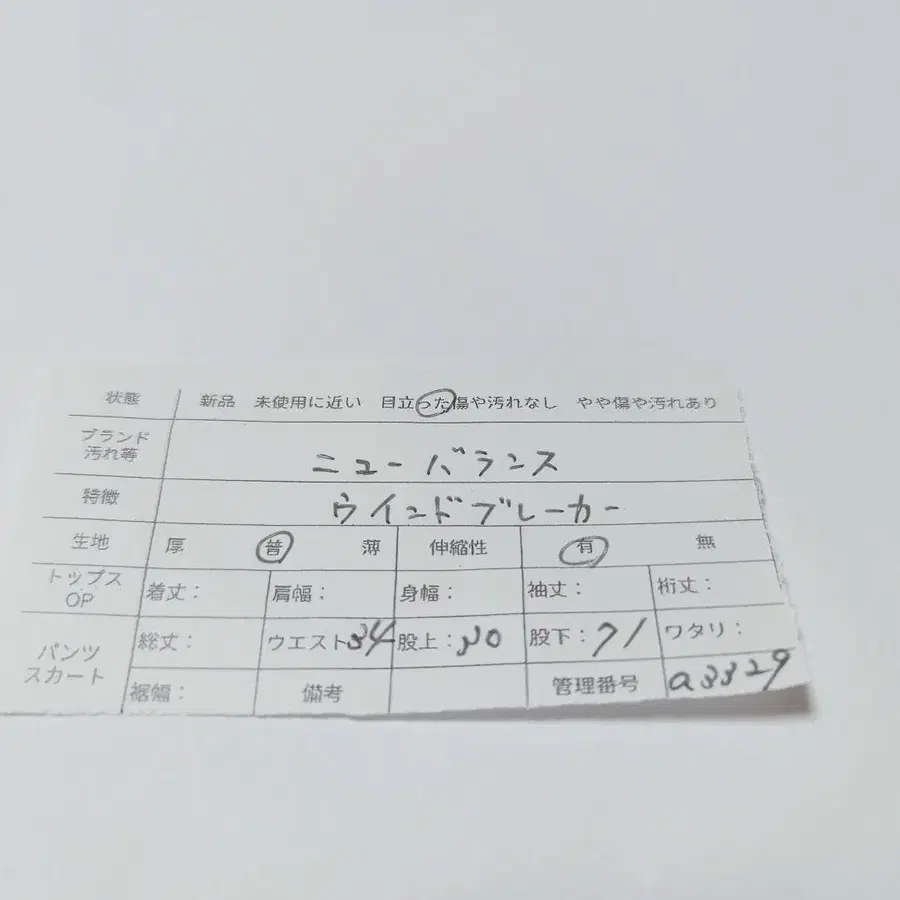 状態 新品 未使用に近い 目立った傷や汚れなし やや傷や汚れあり
ブランド
汚れ等 ニューバランス
特徴 ウインドブレーカー
生地 厚 普 薄 伸縮性 有 無
トップス
OP 着丈: 肩幅: 身幅: 袖丈: 裄丈:
パンツ
スカート 総丈: ウエスト34 股上:30 股下:71 ワタリ:
裾幅: 備考 管理番号 a3329